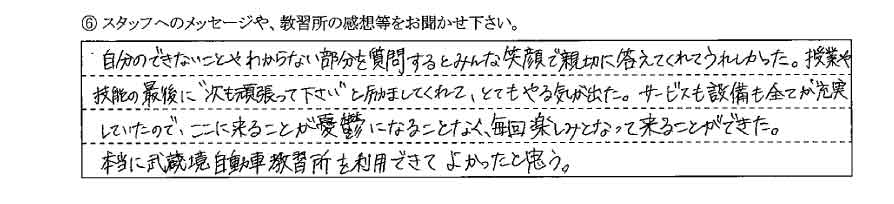 ⑥ スタッフへのメッセージや、教習所の感想等をお聞かせ下さい。
自分のできないことやわからない部分を質問するとみんな笑顔で親切に答えてくれてうれしかった。授業や
技能の最後に"次も頑張って下さい"と励ましてくれて、とてもやる気が出た。サービスも設備も全てが充実
していたので、ここに来ることが憂鬱になることなく、毎回楽しみとなって来ることができた。
本当に武蔵境自動車教習所を利用できてよかったと思う。